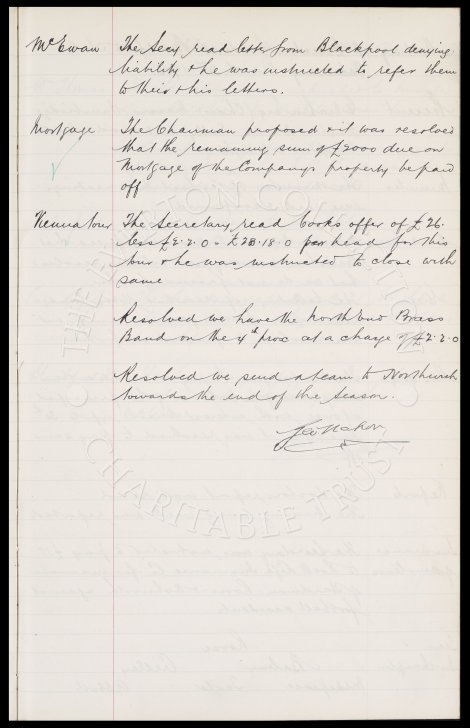 McEwan The Secy read letter from Blackpool denying
liability & he was instructed to refer them
to their & his letters.
Mortgage The Chairman proposed & it was resolved
that the remaining sum of £2000 due on
Mortgage of the Company's property be paid
off
Vienna tour The Secretary read Cooks offer of £26.
less £2.2.0 = £23.18.0 per head for this
tour & he was instructed to close with
same
Resolved we have the North End Brass
Band on the 4th prox at a charge of £2.2.0
Resolved we send a team to Northwich
towards the end of the Season.
THE EVERTON COLLECTION
CHARITABLE TRUST